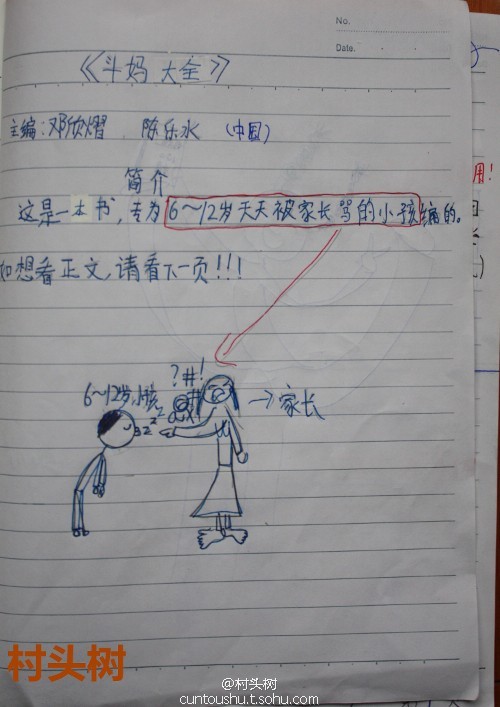 No.
Date.
《斗妈大全》
主编:邓欣熠 陈乐水 (中国)
简介
这是一本书,专为6~12岁天天被家长骂的小孩编的。
如想看正文,请看下一页!!!
用!
?#!
6~12岁小孩
zzz
→家长
村头树
@村头树
cuntoushu.t.sohu.com